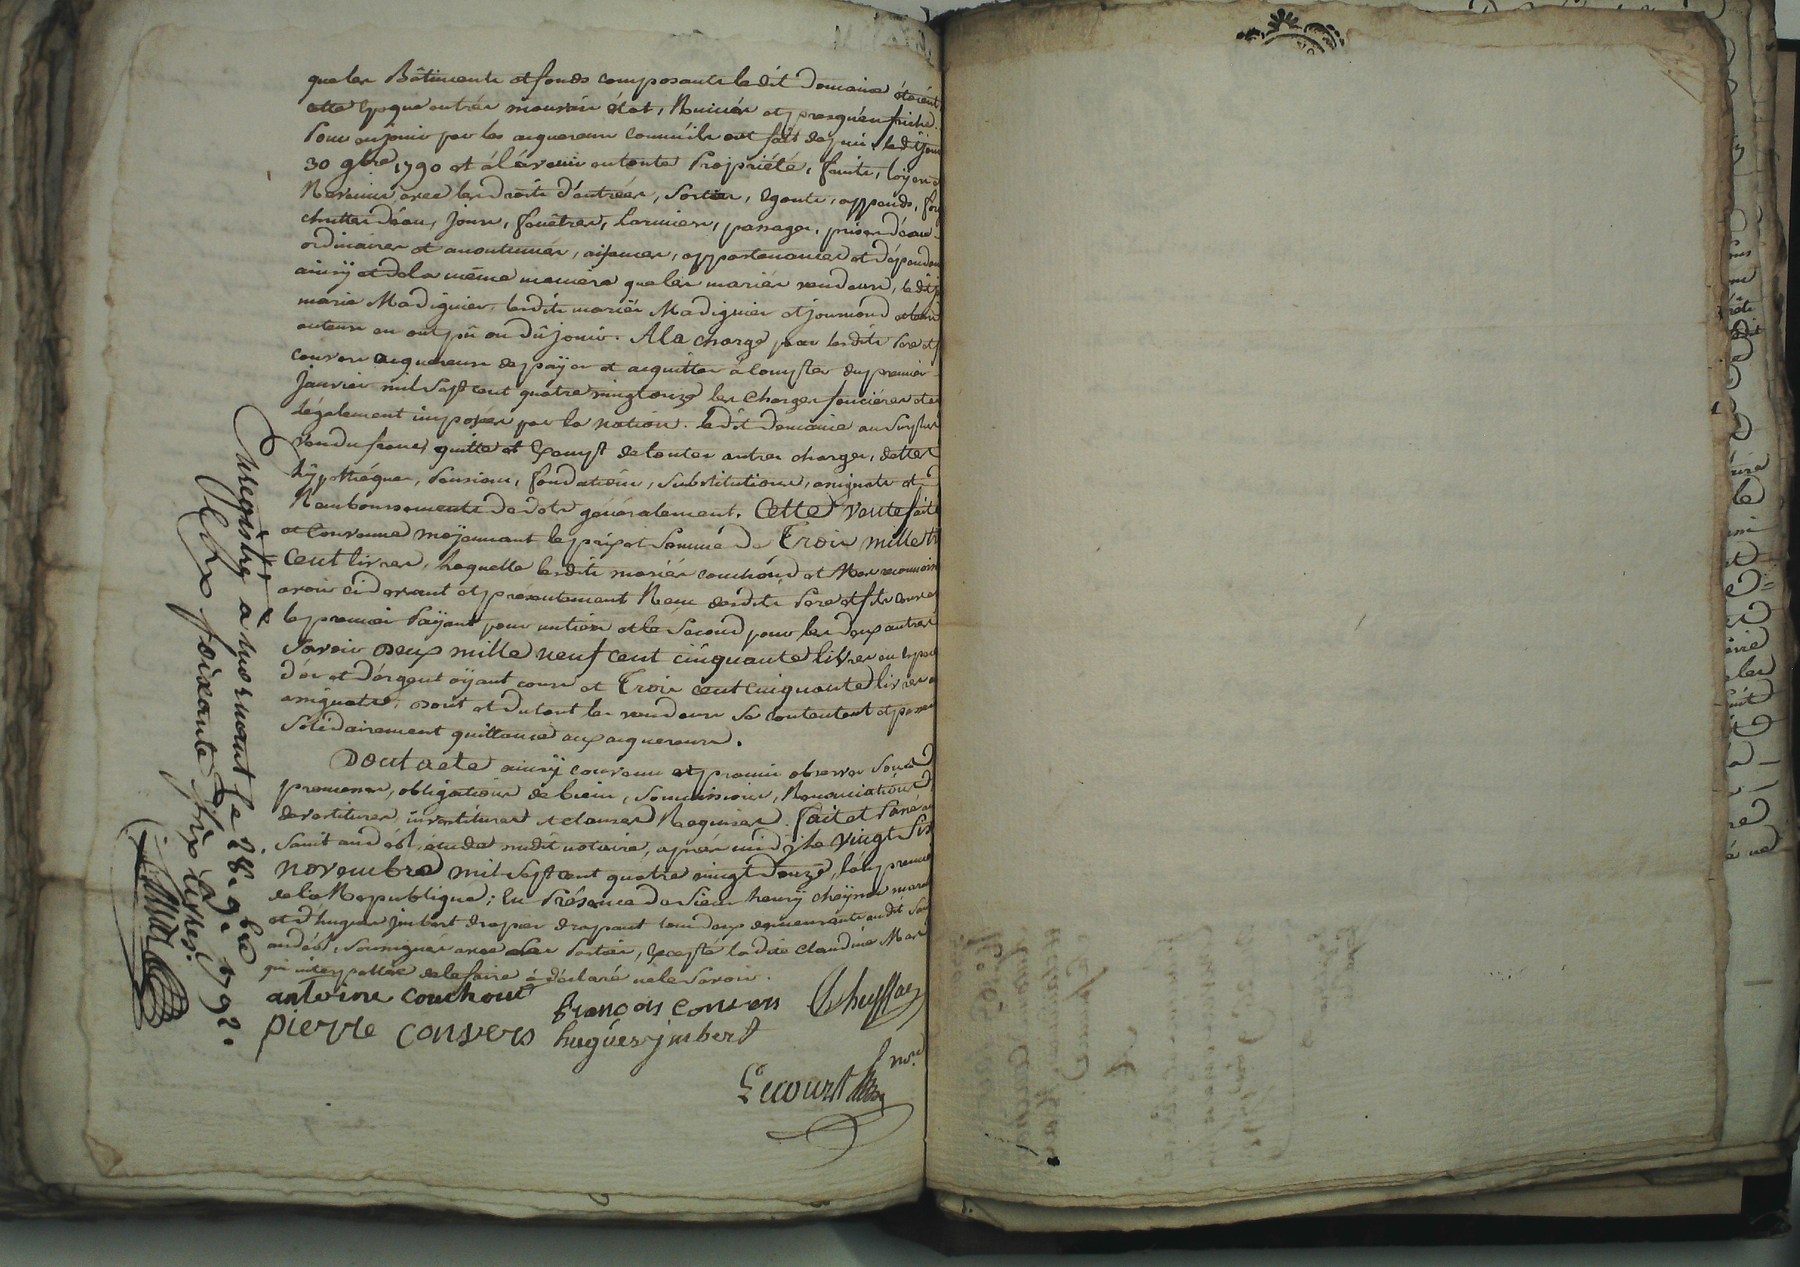 que les Bâtiments et fonds composants le dit Domaine étoient
cette Epoque en très mauvais état, Ruinés et presqu'en friche.
Pour en jouir par les acquereurs comm'ils ont fait depuis le dit jour
30 9bre 1790 et à l'avenir en toute Propriété, fruits, loyers
Revenus avec les droits d'entrées, sorties, Egouts, appends,
chuttes d'eau, jours, fenêtres, Larmiers, passages, prises d'eau
ordinaires et accoutumés, aisances, appartenances et dépendan
ainsy et de la même maniere que les mariés vendeurs, le dit
marie Madignier, lesdits mariés Madignier et Journoud et leurs
auteurs en ont jüi ou dû jouir. A la charge par lesdits Pere et f
convers acquereurs de payer et acquitter à compter du premier
Janvier mil sept cent quatre vingt onze les charges foncieres et
légalement imposées par la nation. le dit Domaine au surplus
vendu franc, quitte et Exempt de toutes autres charges, dettes
hÿpothéques, Pensions, fondations, substitutions, assignats et
Remboursements de dots généralement. Cette vente faite
et Convenue moÿennant le prix et somme de Trois mille tr
cent livres, Laquelle lesdits mariés couchoud et Mar reconnoiss
avoir cÿ devant et presentement Reçu desdits Pere et fils convers
le premier Païant pour un tiers et le second pour les deux autres
savoir Deux mille neuf cent cinquante livres en espece
d'or et d'argent aÿant cours et Trois cent cinquante livres
assignats, Dont et du tout les vendeurs se contentent et passent
Solidairement quittance aux acquereurs.
Dont acte ainsÿ convenu et promis observer sous
promesses, obligations de biens, soumissions, Renonciations
devestitures, investitures et clauses Requises. Fait et Passé au
Saint andéol, etude dudit notaire, après midy le vingt six
novembre mil sept cent quatre vingt douze, l'an premier
de la Republique; En Présence de Sieur henrÿ
et d'hugues jmbert drapier drapant tous deux demeurants audit Saint
andéol, soussignés avec les Parties, Excepté la dite claudine Mar
qui interpellée de le faire à déclaré ne le savoir.
antoine couchoud françois convers
pierre convers hugues jmbert
Lecourt nore
Enregistré à mornant le 28e. 9bre 1792.
Reçu soixante six livres.